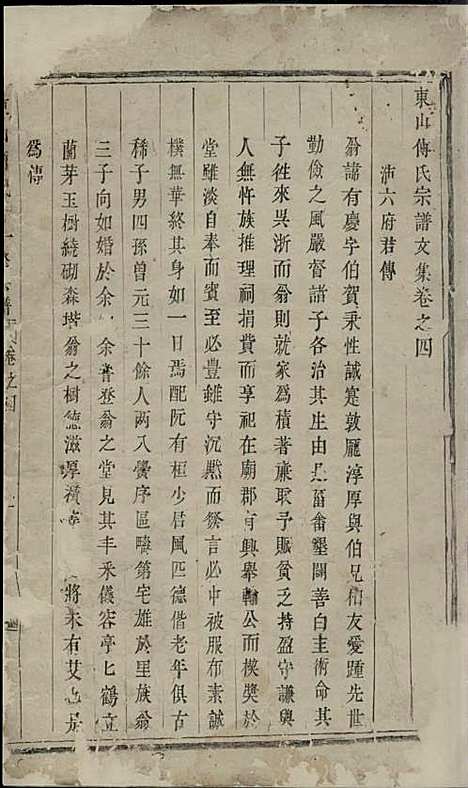 東山傅氏宗譜文集卷之四
沛六府君傳
翁諱有慶字伯賀秉性誠寔敦龎淳厚與伯兄相友愛踵先世
勤儉之風嚴督諸子各治其生由是菑畬墾闢善白圭術命其
子徃來吳浙而翁則就家為積著亷取予賑貧乏持盈守謙與
人無忤族推理祠捐費而享祀在廟郡有興舉輸公而模奬於
堂雖淡自奉而賓至必豐錐守沉默而發言必中被服布素誠
樸無華終其身如一日焉配阮有桓少君風匹德偕老年俱古
稀子男四孫曾元三十餘人兩入黌序區疇第宅雄於里族翁
三子向如婚於余 余嘗登翁之堂見其丰釆儀容亭匕鶴立
蘭芽玉樹繞砌森堦翁之樹德滋厚積 將來有艾 是
為傳
卷之四